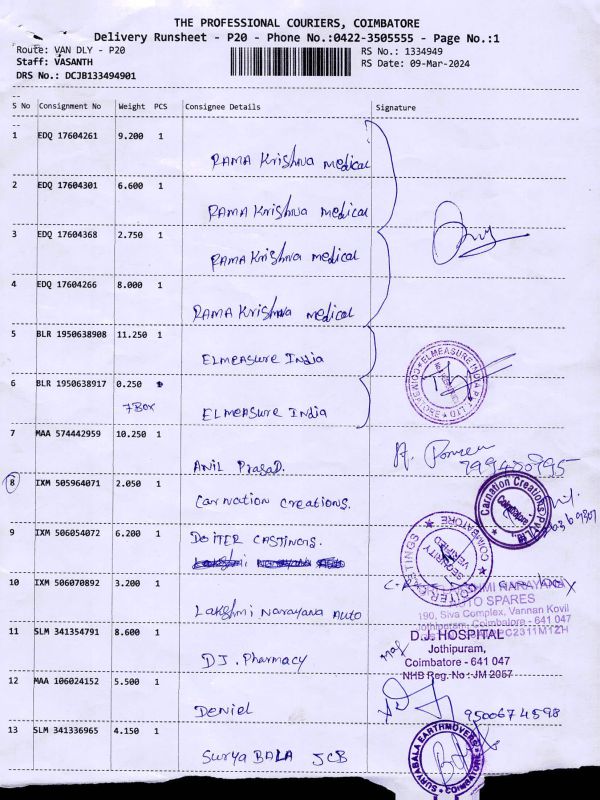 THE PROFESSIONAL COURIERS, COIMBATORE
Delivery Runsheet - P20 - Phone No.:0422-3505555 - Page No.:1
Route: VAN DLY - P20
RS No.: 1334949
Staff: VASANTH
RS Date: 09-Mar-2024
DRS No.: DCJB133494901
S No Consignment No Weight PCS Consignee Details Signature
1 EDQ 17604261 9.200 1
RAMA Krishna medical
2 EDQ 17604301 6.600 1
RAMA Krishna medical
3 EDQ 17604368 2.750 1
RAMA Krishna medical
4 EDQ 17604266 8.000 1
RAMA Krishna medical
5 BLR 1950638908 11.250 1
ELmeasure India
6 BLR 1950638917 0.250
7 Box ELmeasure India
ELMEASURE INDIA P. LTD COIMBATORE
7 MAA 574442959 10.250 1
Anil Prasad.
8 IXM 505964071 2.050 1
Carnation Creations.
Carnation Creations Pvt Ltd
Coimbatore
9 IXM 506054072 6.200 1
DOITER CASTINGS.
DOITER CASTINGS COIMBATORE
SECURITY VERIFIED
10 IXM 506070892 3.200 1
Lakshmi Narayana Auto
LAKSHMI NARAYANA
AUTO SPARES
190, Siva Complex, Vannan Kovil
Jothipuram, Coimbatore - 641 047
11 SLM 341354791 8.600 1
DJ. Pharmacy
D.J. HOSPITAL
Jothipuram,
Coimbatore - 641 047
NHB Reg. No : JM 2057
12 MAA 106024152 5.500 1
Deniel
9500674598
13 SLM 341336965 4.150 1
Surya BALA JCB
SURYABALA EARTHMOVERS COIMBATORE